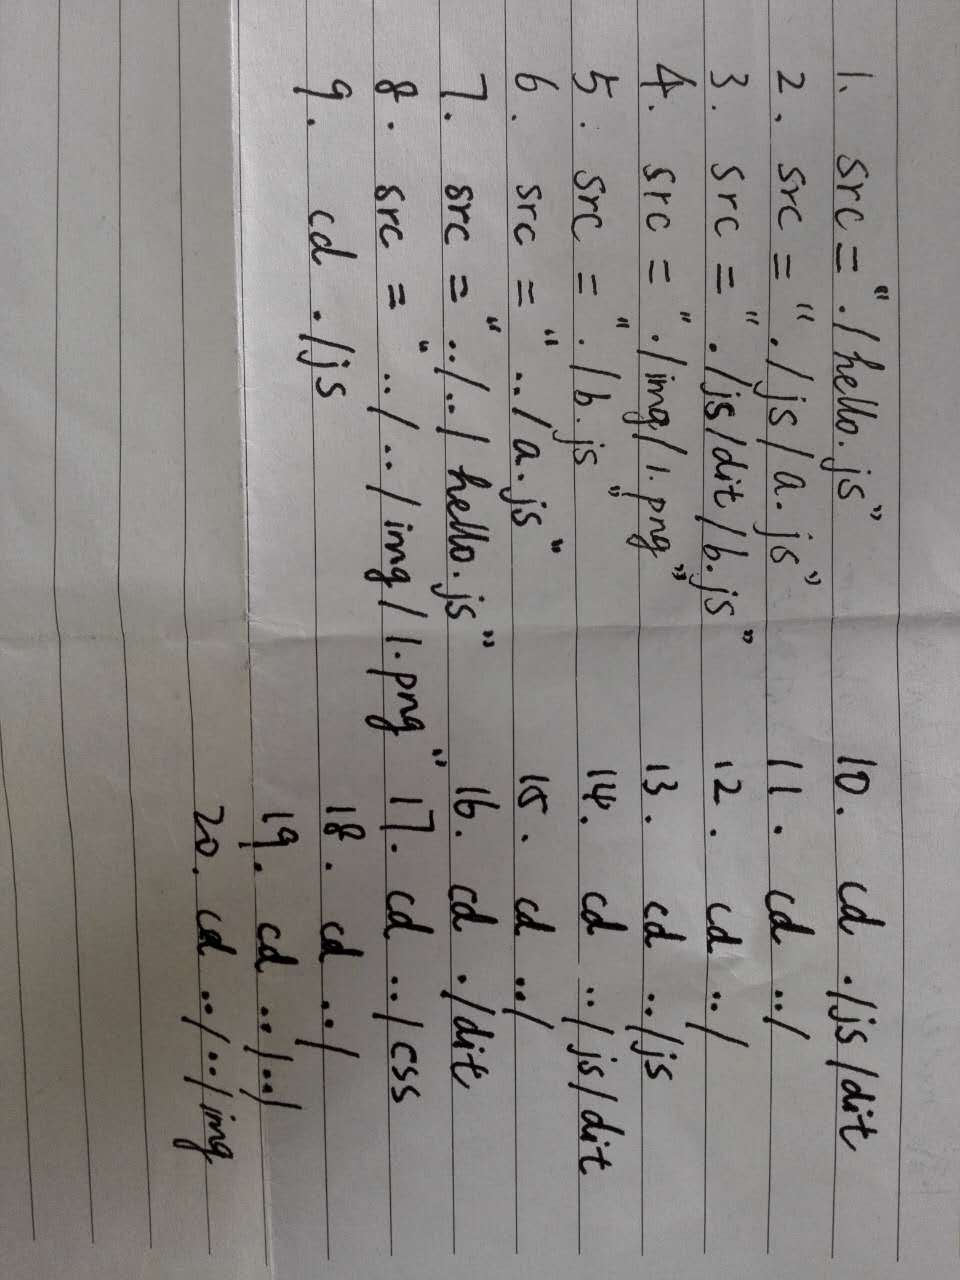 1. src = "./hello.js"
2. src = "./js/a.js"
3. src = "./js/dit/b.js"
4. src = "./img/1.png"
5. src = "./b.js"
6. src = "../a.js"
7. src = "../../hello.js"
8. src = "../../img/1.png"
9. cd ./js
10. cd ./js/dit
11. cd ../
12. cd ../
13. cd ../js
14. cd ../js/dit
15. cd ../
16. cd ./dit
17. cd ../css
18. cd ../
19. cd ../../
20. cd ../../img